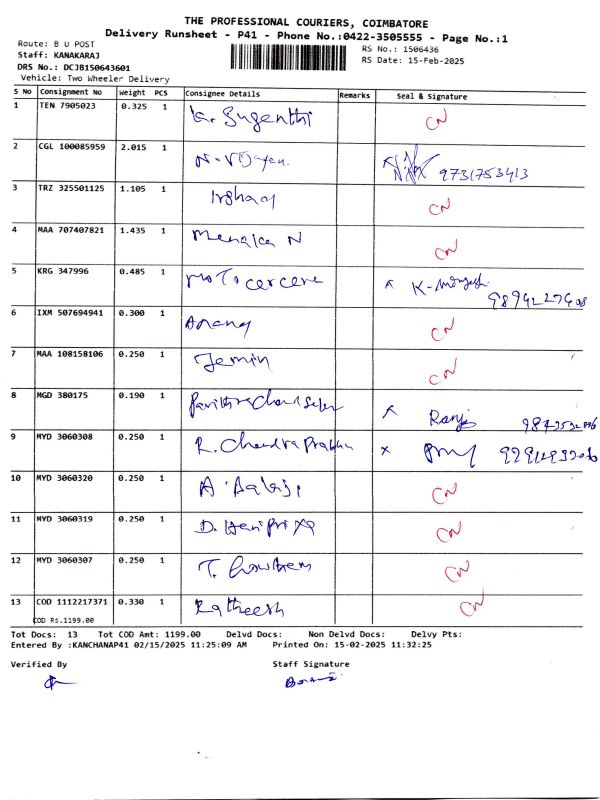 THE PROFESSIONAL COURIERS, COIMBATORE
Delivery Runsheet - P41 - Phone No.:0422-3505555 - Page No.:1
Route: B U POST
RS No.: 1506436
Staff: KANAKARAJ
RS Date: 15-Feb-2025
DRS No.: DCJB150643601
Vehicle: Two Wheeler Delivery
S No Consignment No Weight PCS Consignee Details Remarks Seal & Signature
1 TEN 7905023 0.325 1 K. Sugenthi CN
2 CGL 100085959 2.015 1 N-Vijayan. 9731753413
3 TRZ 325501125 1.105 1 Irshad CN
4 MAA 707407821 1.435 1 Menaka N CN
5 KRG 347996 0.485 1 K-
6 IXM 507694941 0.300 1 Anand CN
7 MAA 108158106 0.250 1 Jemin CN
8 MGD 380175 0.190 1 Ranji
9 MYD 3060308 0.250 1 R. Chandra Prabhu x
10 MYD 3060320 0.250 1 A. Balaji CN
11 MYD 3060319 0.250 1 D. CN
12 MYD 3060307 0.250 1 T. CN
13 COD 1112217371 0.330 1 Ratheesh CN
COD Rs.1199.00
Tot Docs: 13 Tot COD Amt: 1199.00 Delvd Docs: Non Delvd Docs: Delvy Pts:
Entered By :KANCHANAP41 02/15/2025 11:25:09 AM Printed On: 15-02-2025 11:32:25
Verified By Staff Signature